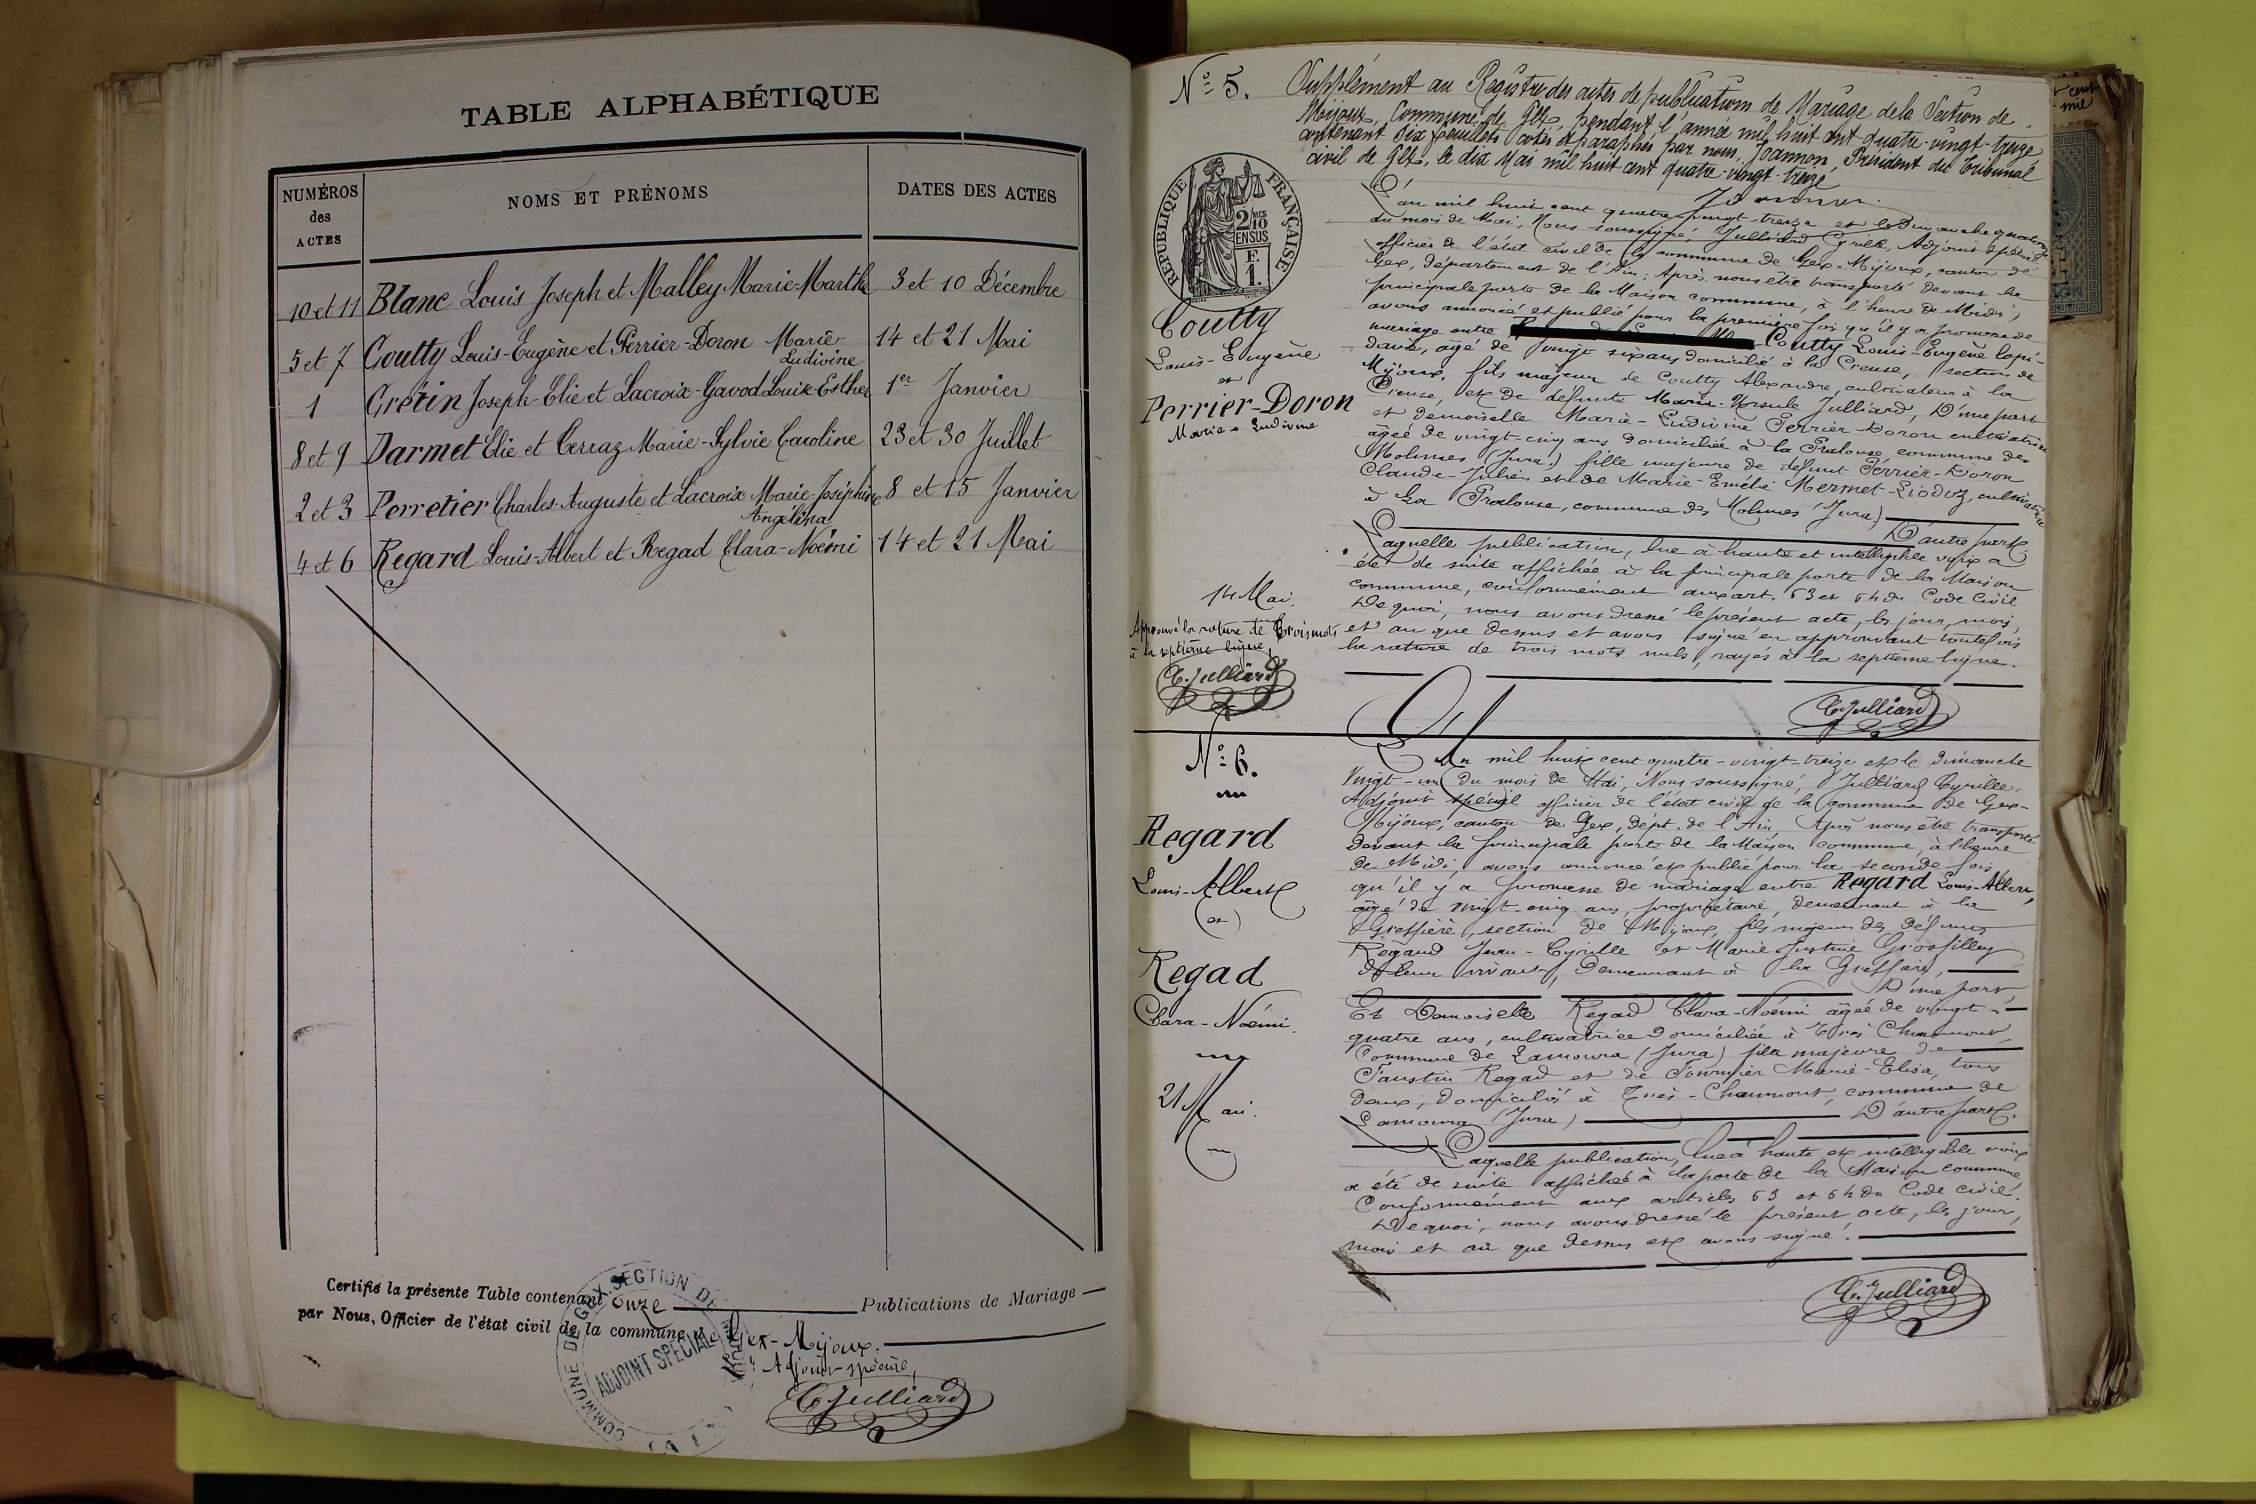 TABLE ALPHABÉTIQUE
NUMÉROS des ACTES
NOMS ET PRÉNOMS
DATES DES ACTES
10 et 11 Blanc Louis Joseph et Malley Marie-Marthe 3 et 10 Décembre
5 et 7 Coutty Louis-Eugène et Perrier-Doron Marie-Ludivine 14 et 21 Mai
1 Grétin Joseph-Elie et Lacroix-Gavod Louise-Esther 1er Janvier
8 et 9 Darmet Elie et Cerraz Marie-Sylvie Caroline 23 et 30 Juillet
2 et 3 Perretier Charles-Auguste et Lacroix Marie-Joséphine Angélina 8 et 15 Janvier
4 et 6 Regard Louis-Albert et Regad Clara-Noémi 14 et 21 Mai
Certifié la présente Table contenant Onze Publications de Mariage
par Nous, Officier de l'état civil de la commune de Gex-Mijoux.
Adjoint-spécial,
C. Julliard
COMMUNE DE GEX. SECTION DE MIJOUX
ADJOINT SPÉCIAL
(AIN)
N° 5.
Supplément au Registre des actes de publications de Mariage de la Section de
Mijoux, Commune de Gex, pendant l'année mil huit cent quatre-vingt-treize
contenant dix feuillets cotés et paraphés par nous, Joannon, Président du Tribunal
civil de Gex, le dix Mai mil huit cent quatre-vingt-treize
Joannon.
RÉPUBLIQUE FRANÇAISE
2/10 EN SUS
F. 1.
Coutty
Louis-Eugène
et
Perrier-Doron
Marie-Ludivine
14 Mai.
Approuvé la rature de trois mots
à la septième ligne,
C. Julliard
L'an mil huit cent quatre-vingt-treize et le Dimanche quatorze
du mois de Mai, Nous soussigné, Julliard Cyrille, Adjoint spécial
officier de l'état civil de la commune de Gex-Mijoux, canton de
Gex, département de l'Ain; Après nous être transporté devant la
principale porte de la Maison commune, à l'heure de Midi,
avons annoncé et publié pour la première fois qu'il y a promesse de
mariage entre Coutty Louis-Eugène lapi-
daire, âgé de vingt six ans domicilié à la Creuse, section de
Mijoux, fils majeur de Coutty Alexandre, cultivateur à la
Creuse, et de défunte Marie-Ursule Julliard, D'une part
et demoiselle Marie-Ludivine Perrier-Doron cultivatrice
âgée de vingt-cinq ans domiciliée à la Pralouse commune des
Molunes (Jura.) fille majeure de défunt Perrier-Doron
Claude-Julien et de Marie-Emélie Mermet-Liodoz, cultivatrice
à La Pralouse, commune des Molunes (Jura)
D'autre part.
Laquelle publication, lue à haute et intelligible voix a
été de suite affichée à la principale porte de la Maison
commune, conformément aux art. 63 et 64 du Code Civil
De quoi, nous avons dressé le présent acte, les jour, mois,
et an que dessus et avons signé en approuvant toutefois
la rature de trois mots nuls, rayés à la septième ligne.
C. Julliard
N° 6.
Regard
Louis-Albert
(et)
Regad
Clara-Noémi.
21 Mai.
L'an mil huit cent quatre-vingt-treize et le Dimanche
vingt-un du mois de Mai, Nous soussigné, Julliard Cyrille,
Adjoint spécial officier de l'état civil de la commune de Gex-
Mijoux, canton de Gex, dépt. de l'Ain, Après nous être transporté
devant la principale porte de la Maison commune, à l'heure
de Midi, avons annoncé et publié pour la seconde fois
qu'il y a promesse de mariage entre Regard Louis-Albert,
âgé de vingt-cinq ans, propriétaire, demeurant à la
Greffière, section de Mijoux, fils majeur des défunts
Regard Jean-Cyrille et Marie-Justine Grosfilley
de leur vivant, Demeurant à la Greffière,
D'une part,
Et Demoiselle Regad Clara-Noémi âgée de vingt-
quatre ans, cultivatrice domiciliée à Très Chaumont,
Commune de Lamoura (Jura) fille majeure de
Faustin Regad et de Fournier Marie-Elisa, tous
deux, domiciliés à Très-Chaumont, commune de
Lamoura (Jura) D'autre part.
Laquelle publication, lue à haute et intelligible voix
a été de suite affichée à la porte de la Maison commune
Conformément aux articles 63 et 64 du Code civil.
De quoi, nous avons dressé le présent acte, les jour,
mois et an que dessus et avons signé.
C. Julliard